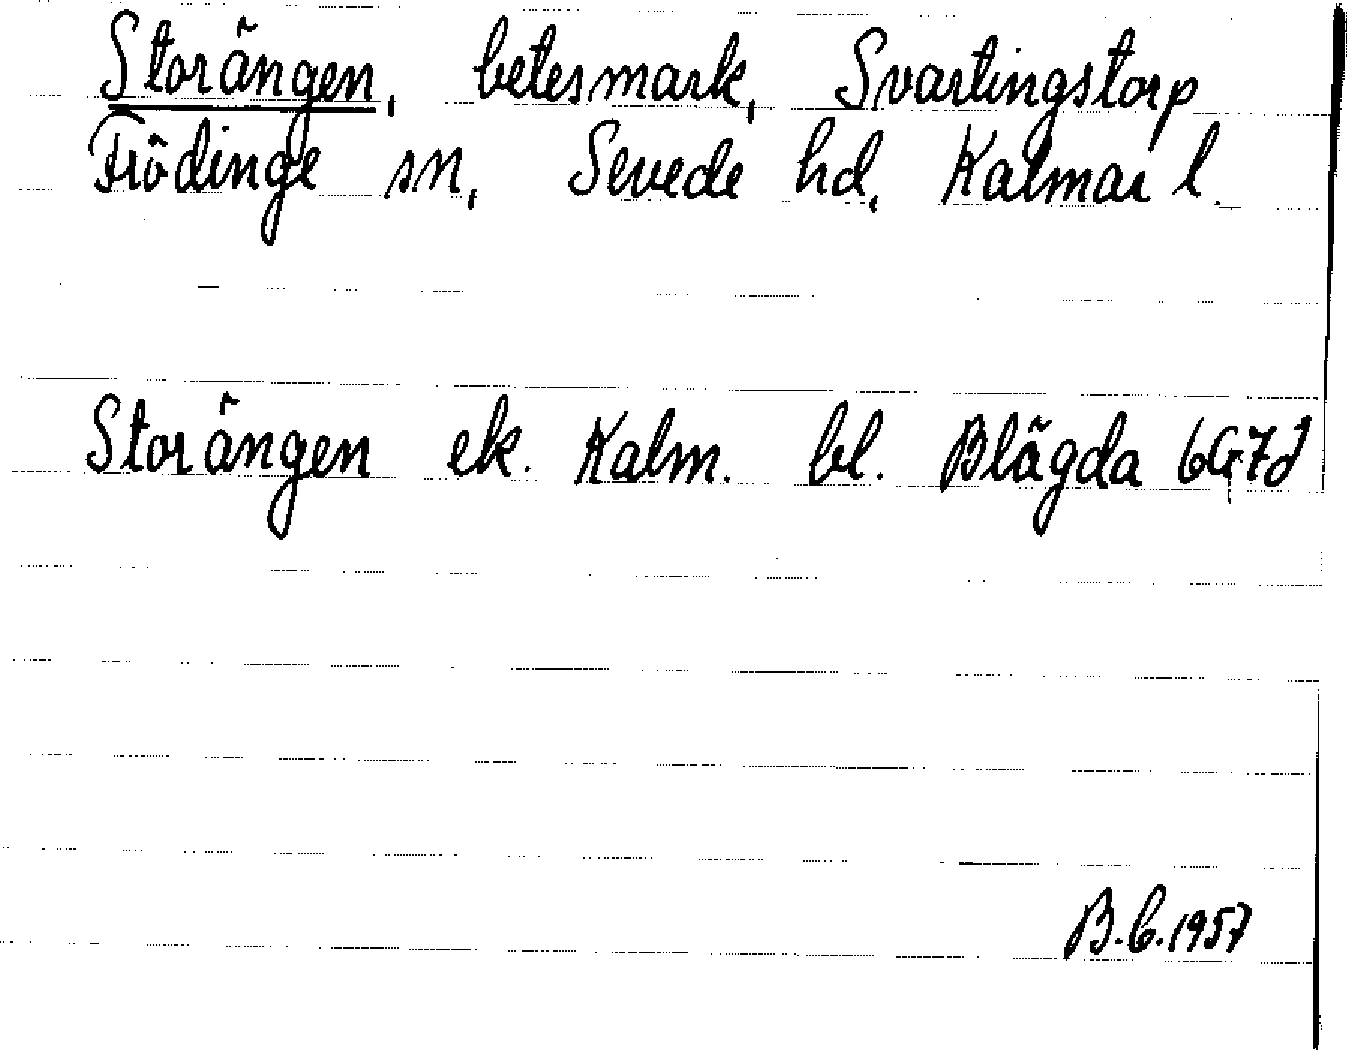 Storängen, betesmark, Svartingstorp
Frödinge sn, Sevede hd, Kalmar l.
Storängen ek. Kalm. bl. Blägda 6G7d
B.C.1957